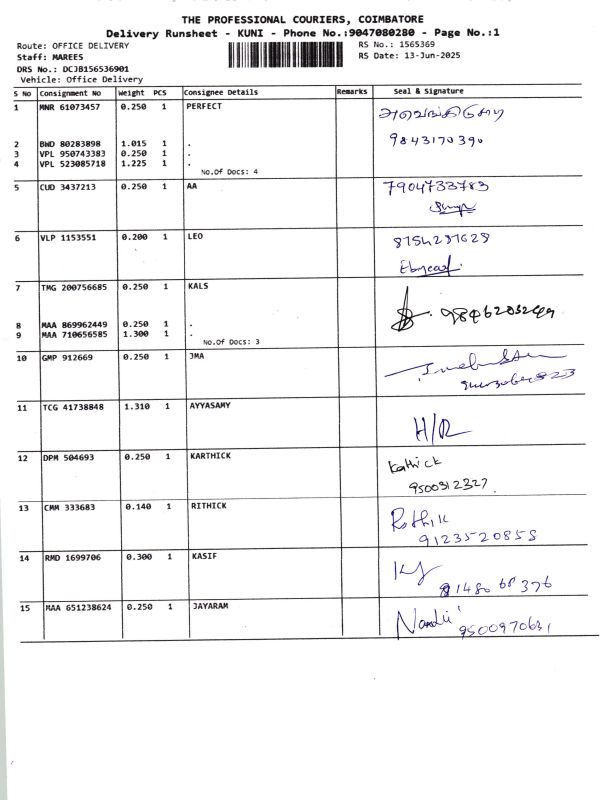 THE PROFESSIONAL COURIERS, COIMBATORE
Delivery Runsheet - KUNI - Phone No.:9047080280 - Page No.:1
Route: OFFICE DELIVERY RS No.: 1565369
Staff: MAREES RS Date: 13-Jun-2025
DRS No.: DCJB156536901
Vehicle: Office Delivery
S No Consignment No Weight PCS Consignee Details Remarks Seal & Signature
1 MNR 61073457 0.250 1 PERFECT
9843170390
2 BWD 80283898 1.015 1 .
3 VPL 950743383 0.250 1 .
4 VPL 523085718 1.225 1 .
No.Of Docs: 4
5 CUD 3437213 0.250 1 AA 7904733783
6 VLP 1153551 0.200 1 LEO 8754237628
7 TMG 200756685 0.250 1 KALS
8 MAA 869962449 0.250 1 .
9 MAA 710656585 1.300 1 .
No.Of Docs: 3
10 GMP 912669 0.250 1 JMA
11 TCG 41738848 1.310 1 AYYASAMY
H/R
12 DPM 504693 0.250 1 KARTHICK Kathick
9500312327
13 CMM 333683 0.140 1 RITHICK Rothik
9123520858
14 RMD 1699706 0.300 1 KASIF
15 MAA 651238624 0.250 1 JAYARAM Nandii
9500970631